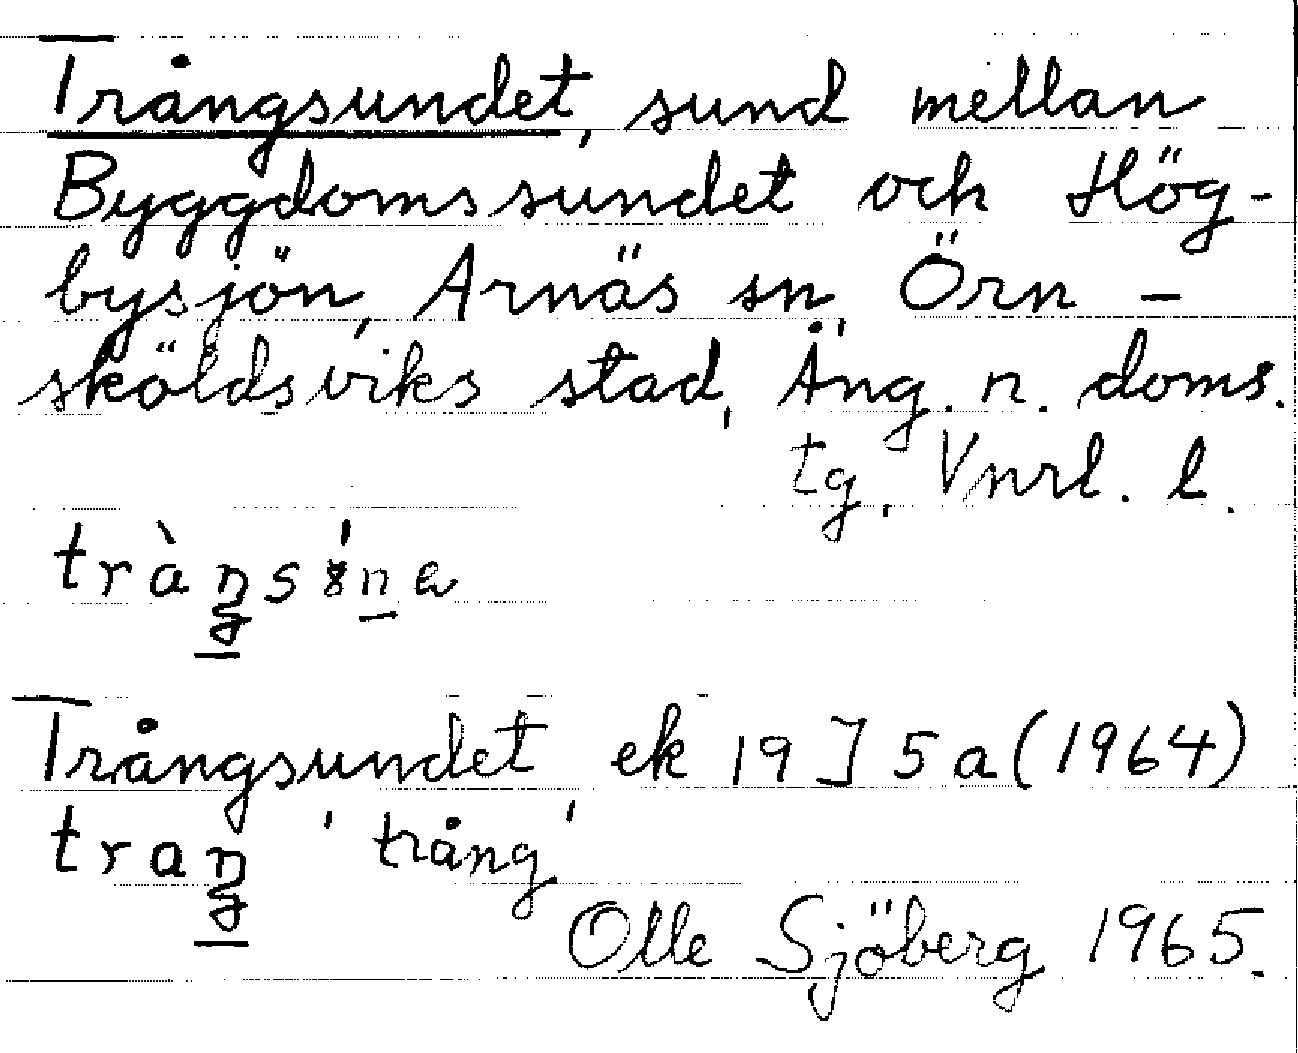 Trångsundet, sund mellan
Byggdomssundet och Hög-
bysjön, Arnäs sn, Örn-
sköldsviks stad, Ång. n. doms.
tg. Vnrl. l.
Trångsundet ek 19 J 5 a (1964)
traŋ 'trång'
Olle Sjöberg 1965.